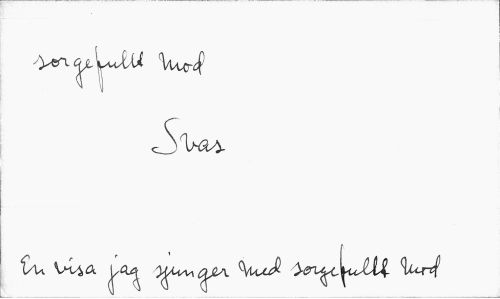 sorgefullt mod
Svas
En visa jag sjunger med sorgefullt mod